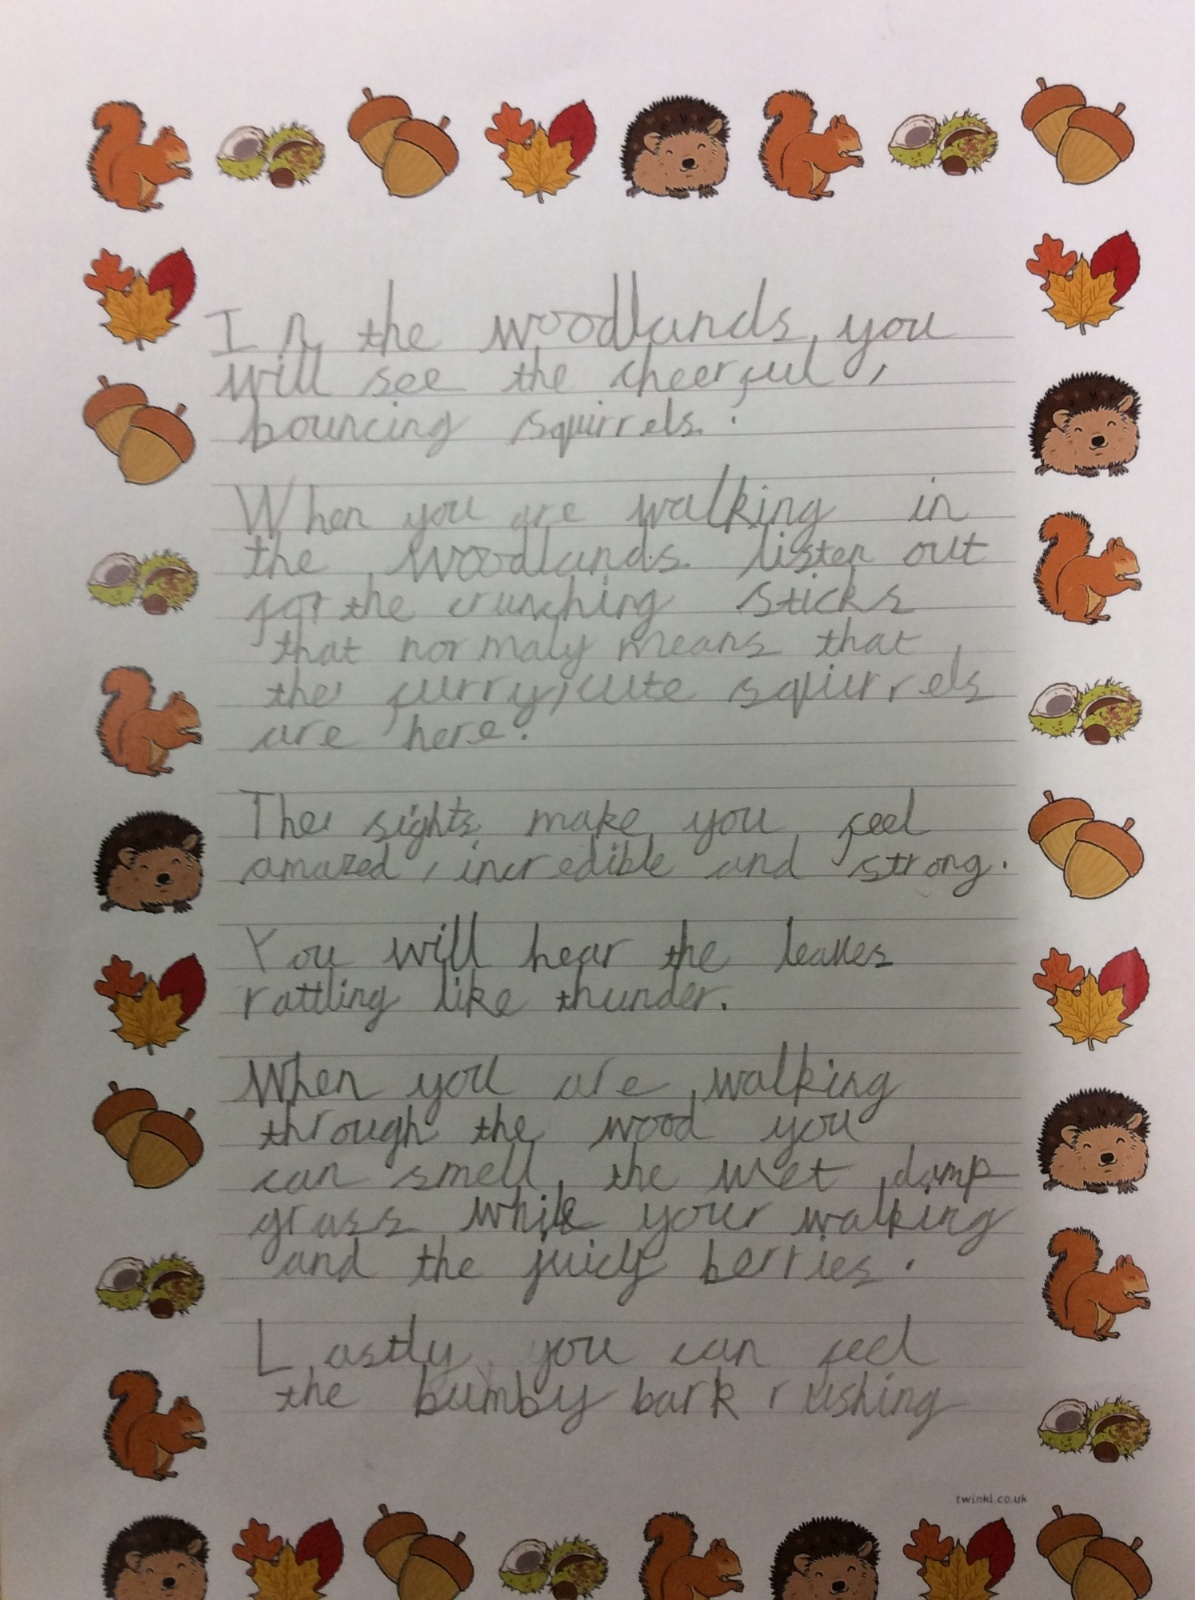 In the woodlands, you
will see the cheerful,
bouncing squirrels.
When you are walking in
the woodlands. listen out
for the crunching sticks
that normaly means that
the furry, cute squirrels
are here.
The sights make you feel
amazed, incredible and strong.
You will hear the leaves
rattling like thunder.
When you are walking
through the wood you
can smell the wet damp
grass while your walking
and the juicy berries.
Lastly, you can feel
the bumby bark rushing
twinkl.co.uk